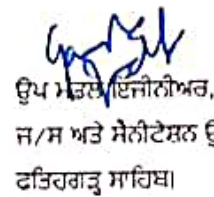 ਉਪ ਮੰਡਲ ਇੰਜੀਨੀਅਰ,
ਜ/ਸ ਅਤੇ ਸੈਨੀਟੇਸ਼ਨ ਉ
ਫਤਿਹਗੜ੍ਹ ਸਾਹਿਬ।